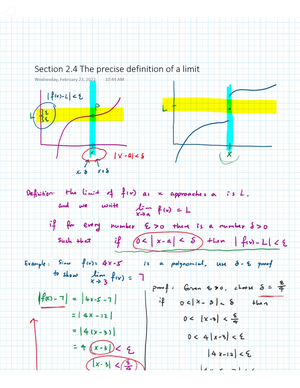 Section 2.4 The precise definition of a limit
Wednesday, February 23, 2022 10:44 AM
|f(x)-L| < ε
L
L
x
|x-a| < δ
Definition: the limit of f(x) as x approaches a is L,
and we write lim x→a f(x) = L
if for every number ε>0 there is a number δ>0
such that if 0<|x-a|<δ then |f(x)-L|<ε
Example: Since f(x)=4x-5 is a polynomial, use δ-ε proof
to show lim x→3 f(x) = 7
|f(x)-7| = |4x-5-7|
= |4x-12|
= |4(x-3)|
= 4|x-3| < ε
|x-3| < ε/4
proof: Given ε>0, choose δ = ε/4
if 0<|x-3|<δ then
0<|x-3|<ε/4
0< 4|x-3| < ε
|4x-12| < ε